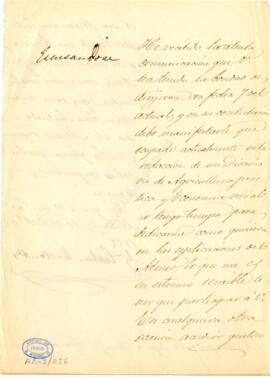 Escusandose
He recibido la atenta
comunicacion que V.
ha tenido la bondad de
dirijirme con fecha 7 del
actual, y en su contestacion
debo manifestarle que
ocupado actualmente en la
redaccion de un Dicciona-
rio de Agricultura prac-
tica y Economia rural,
no tengo tiempo para
dedicarme como quisiera
en las esplicaciones de ese
Ateneo, lo que me es
en estremo sensible te-
ner que participar á V.
En cualquiera otra
ocasion acudiré gustoso